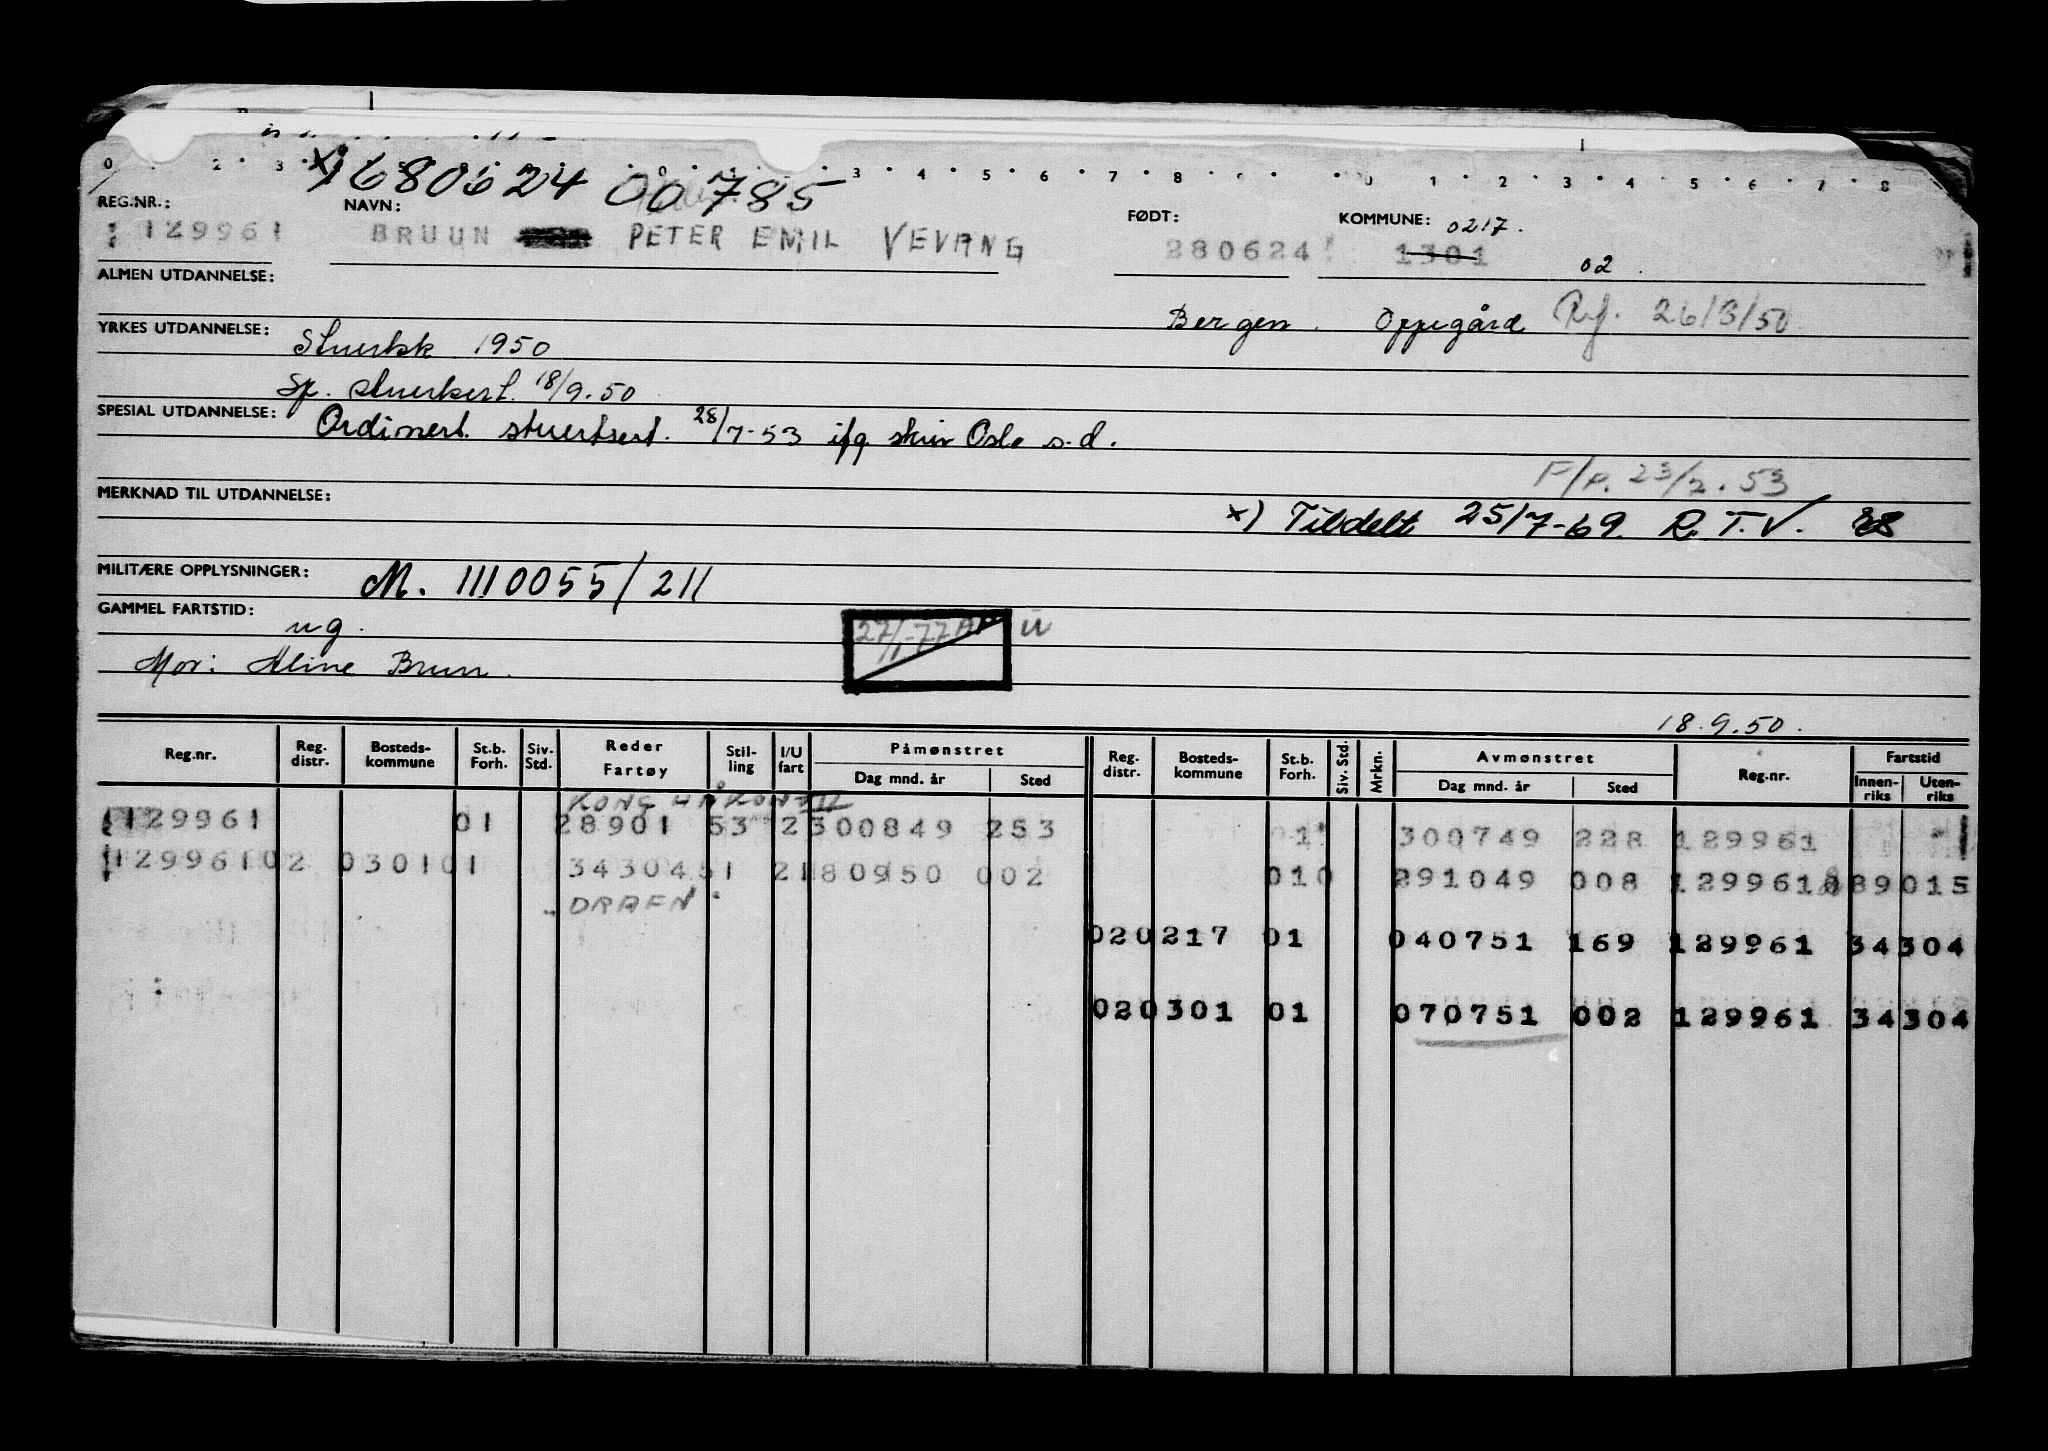 x) 680624 00785
REG.NR.: NAVN: FØDT: KOMMUNE: 0217.
129961 BRUUN PETER EMIL VEVANG 280624 1301 02.
ALMEN UTDANNELSE:
Bergen. Oppegård Rf. 26/3/50
YRKES UTDANNELSE: Stuertsk 1950
Sp. stuertsert. 18/9.50
SPESIAL UTDANNELSE: Ordinert. stuertsert. 28/7-53 ifg. skriv Oslo s.d.
F/P. 23/2.53
MERKNAD TIL UTDANNELSE:
x) Tildelt 25/7-69 R.T.V.
MILITÆRE OPPLYSNINGER: M. 1110055/211
GAMMEL FARTSTID: ug.
27/1-77 AP
Mor: Aline Brun.
18.9.50.
Reg.nr. Reg. distr. Bosteds-kommune St.b. Forh. Siv. Std. Reder Fartøy Stil-ling I/U fart Påmønstret Dag mnd. år Sted Reg. distr. Bosteds-kommune St.b. Forh. Siv. Std. Mrkn. Avmønstret Dag mnd. år Sted Reg.nr. Fartstid Innen-riks Uten-riks
KONG HÅKON VII
129961 01 28901 53 2 300849 253 1 300749 228 129961
129961 02 0301 01 34304 51 2 180950 002 010 291049 008 129961 89015
DRAFN
02 0217 01 040751 169 129961 34304
02 0301 01 070751 002 129961 34304